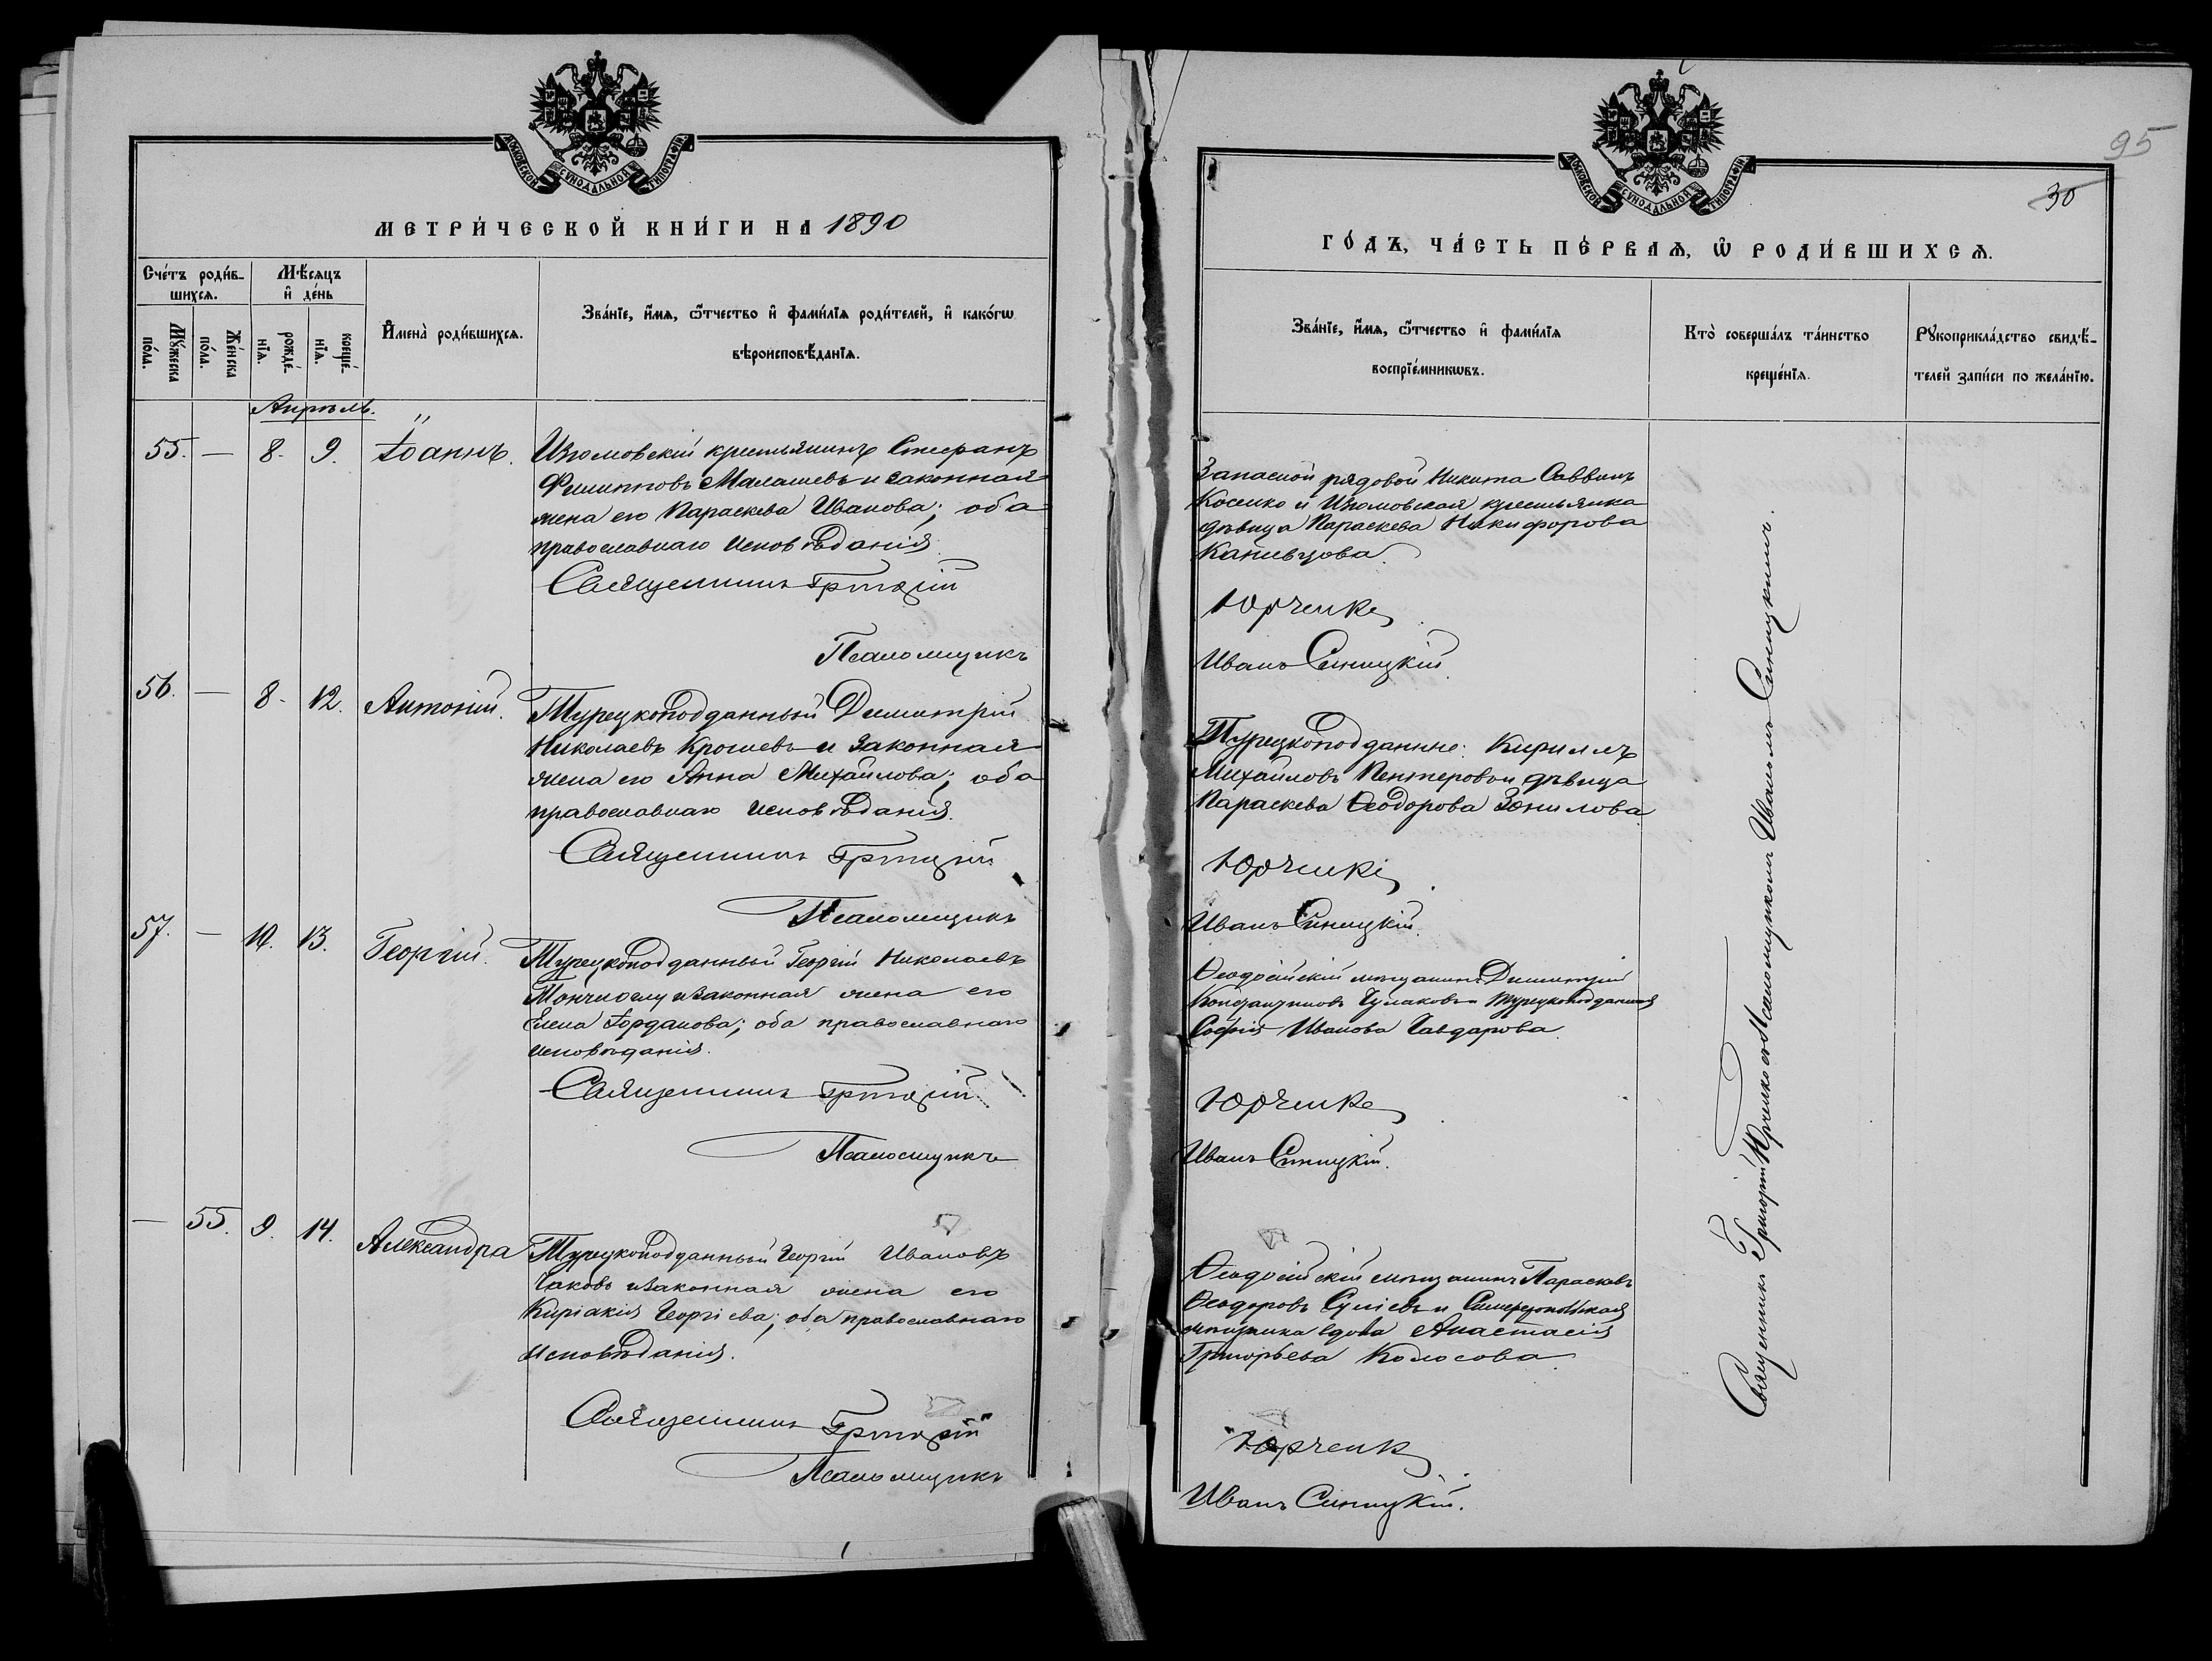 МОСКОВСКОЙ СѴНОДАЛЬНОЙ ТИПОГРАФІИ.
МЕТРИ́ЧЕСКОЙ КНИ́ГИ НА 1890
Сче́тъ роди́в-
шихсѧ.
Мѣ́сѧцъ
и҆ де́нь
Мꙋ́жеска
по́ла.
Же́нска
по́ла.
рожде́-
нїѧ.
креще́-
нїѧ.
И҆мена̀ роди́вшихсѧ.
Зва́нїе, и҆́мѧ, ѻ҆́тчество и҆ фами́лїѧ роди́телей, и҆ како́гѡ
вѣроисповѣ́данїѧ.
Апрѣль.
55. — 8. 9. Іоаннъ.
Изюмовскій крестьянинъ Стефанъ
Филипповъ Малашевъ и законная
жена его Параскева Иванова; оба
православнаго исповѣданія.
Священникъ Григорій
Псаломщикъ
56. — 8. 12. Антоній.
Турецкоподданный Димитрій
Николаевъ Крошевъ и законная
жена его Анна Михайлова; оба
православнаго исповѣданія.
Священникъ Григорій
Псаломщикъ
57. — 10. 13. Георгій.
Турецкоподданный Георгій Николаевъ
и законная жена его
Елена Іорданова; оба православнаго
исповѣданія.
Священникъ Григорій
Псаломщикъ
— 55. 9. 14. Александра
Турецкоподданный Георгій Ивановъ
Чаковъ и законная жена его
Киріакія Георгіева; оба православнаго
исповѣданія.
Священникъ Григорій
Псаломщикъ
95
30
МОСКОВСКОЙ СѴНОДАЛЬНОЙ ТИПОГРАФІИ.
ГО́ДЪ, ЧА́СТЬ ПЕ́РВАѦ, Ѡ҆ РОДИ́ВШИХСѦ.
Зва́нїе, и҆́мѧ, ѻ҆́тчество и҆ фами́лїѧ
воспрїе́мникѡвъ.
Кто̀ соверша́лъ та́инство
креще́нїѧ.
Рꙋкоприкла́дство свидѣ́-
телей за́писи по жела́нїю.
Запасной рядовой Никита Саввинъ
Косенко и Изюмовская крестьянка
дѣвица Параскева Никифорова
Каневцова.
Юрченко
Иванъ Синицкій.
Турецкоподданные: Кириллъ
Михайловъ Пентеровъ и дѣвица
Параскева Ѳеодорова
Юрченко
Иванъ Синицкій.
Ѳеодосійскій мѣщанинъ Димитрій
Константиновъ и турецкоподданная
Софія Иванова Чавдарова.
Юрченко
Иванъ Синицкій.
Ѳеодосійскій мѣщанинъ
Ѳеодоровъ и Симферопольская
мѣщанка вдова Анастасія
Григорьева Колосова
Юрченко
Иванъ Синицкій.
Священникъ Григорій Юрченко съ Псаломщикомъ Иваномъ Синицкимъ.